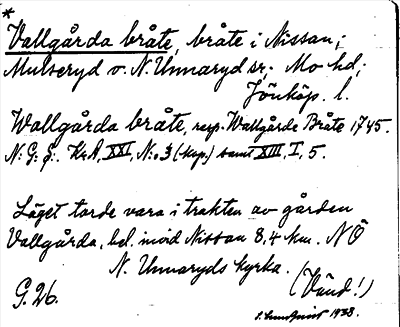 *
Vallgårda bråte, bråte i Nissan;
Mulseryd o. N. Unnaryd sn; Mo hd;
Jönköp. l.
Wallgårda bråte, resp. Wallgårds Bråte 1745.
Kr.A, XXI, N:o 3 (kop.) samt XIII, I, 5.
Läget torde vara i trakten av gården
Vallgårda, bel. invid Nissan 8,4 km. NÖ
N. Unnaryds kyrka.
(Vänd!)
G. 26.
1938.